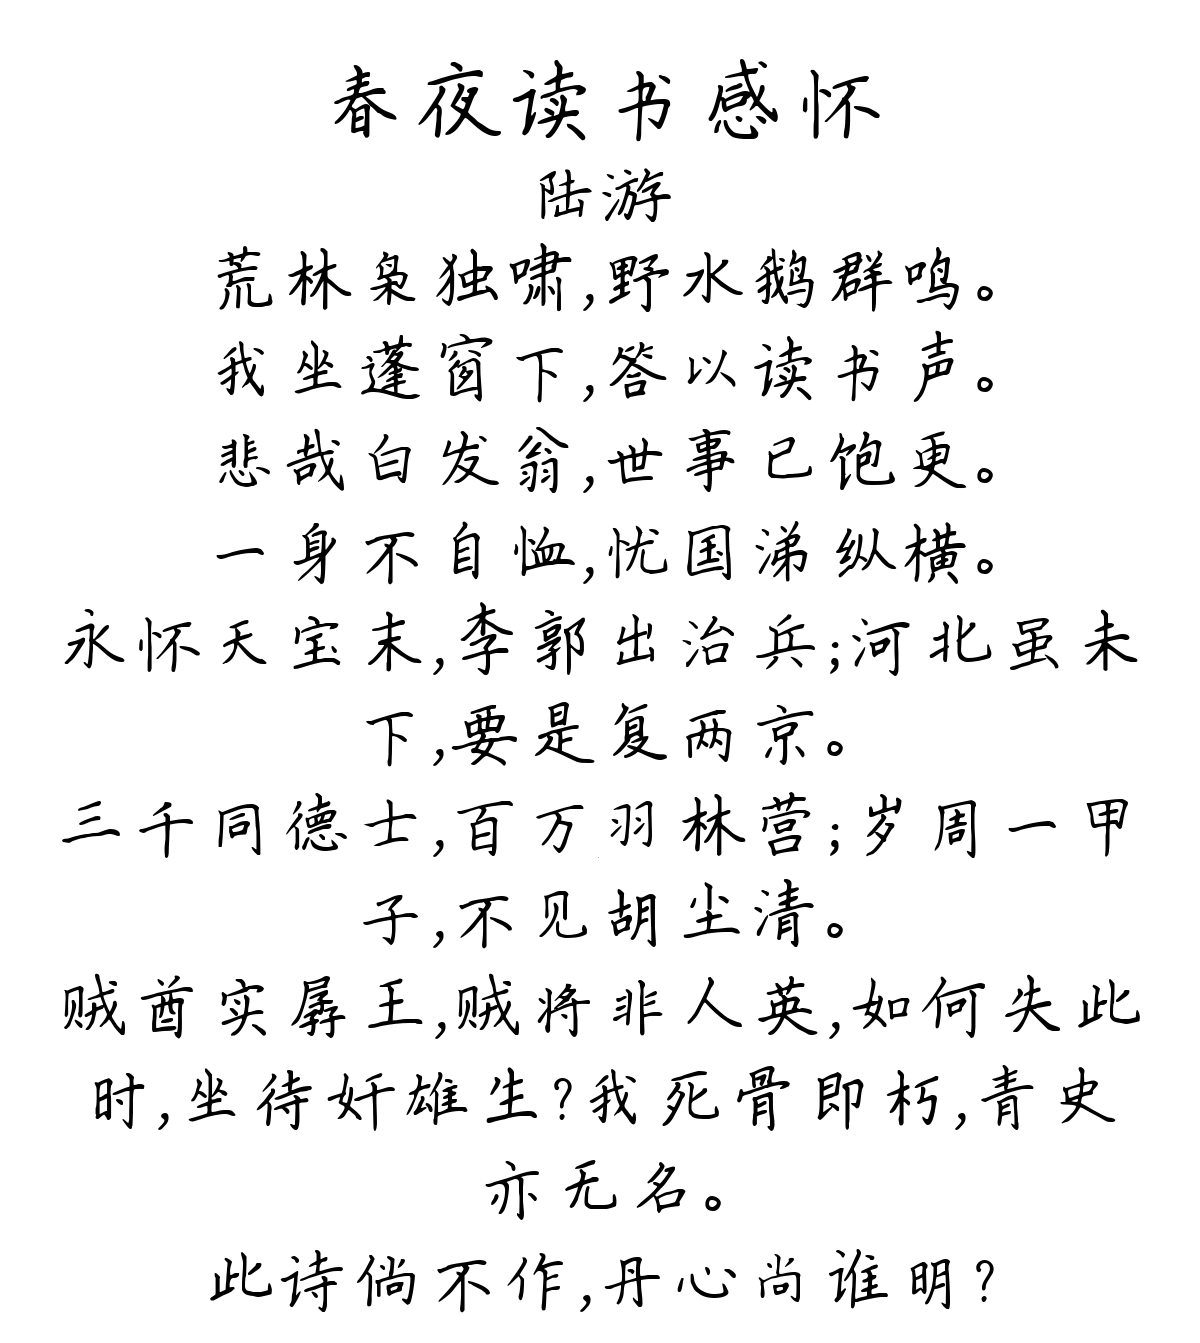 春夜读书感怀
陆游
荒林枭独啸,野水鹅群鸣。
我坐蓬窗下,答以读书声。
悲哉白发翁,世事已饱更。
一身不自恤,忧国涕纵横。
永怀天宝末,李郭出治兵;河北虽未
下,要是复两京。
三千同德士,百万羽林营;岁周一甲
子,不见胡尘清。
贼酋实孱王,贼将非人英,如何失此
时,坐待奸雄生?我死骨即朽,青史
亦无名。
此诗倘不作,丹心尚谁明?